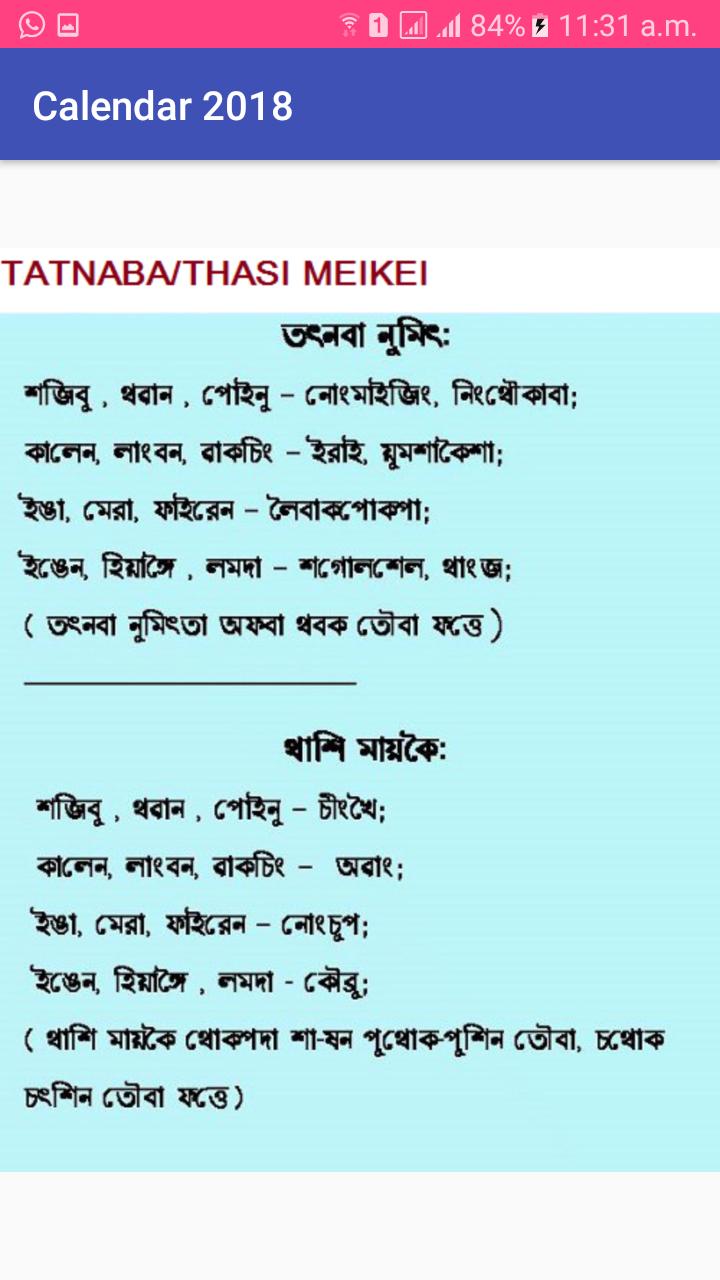 84% 11:31 a.m.
Calendar 2018
TATNABA/THASI MEIKEI
তৎনবা নুমিৎ:
শজিবু , থৱান , পোইনু – নোংমাইজিং, নিংথৌকাবা;
কালেন, লাংবন, ৱাকচিং – ইরাই, য়ুমশাকৈশা;
ইঙা, মেরা, ফাইরেন – লৈবাকপোকপা;
ইঙেন, হিয়াঙ্গৈ , লমদা – শগোলশেল, থাংজ;
( তৎনবা নুমিৎতা অফবা থবক তৌবা ফত্তে )
থাশি মায়কৈ:
শজিবু , থৱান , পোইনু – চীংখৈ;
কালেন, লাংবন, ৱাকচিং – অৱাং;
ইঙা, মেরা, ফাইরেন – নোংচুপ;
ইঙেন, হিয়াঙ্গৈ , লমদা - কৌব্রু;
( থাশি মায়কৈ থোকপদা শা-ষন পুথোক-পুশিন তৌবা, চথোক
চৎশিন তৌবা ফত্তে )